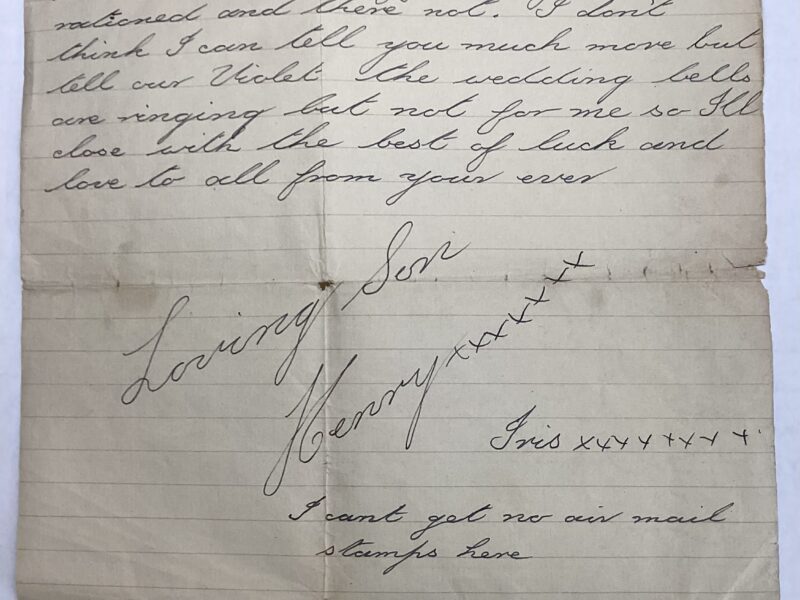 rationed and there not. I don't
think I can tell you much more but
tell our Violet the wedding bells
are ringing but not for me so I'll
close with the best of luck and
love to all from your ever
Loving Son
Henry xxxxxxx
Iris xxxxxxxx
I cant get no air mail
stamps here